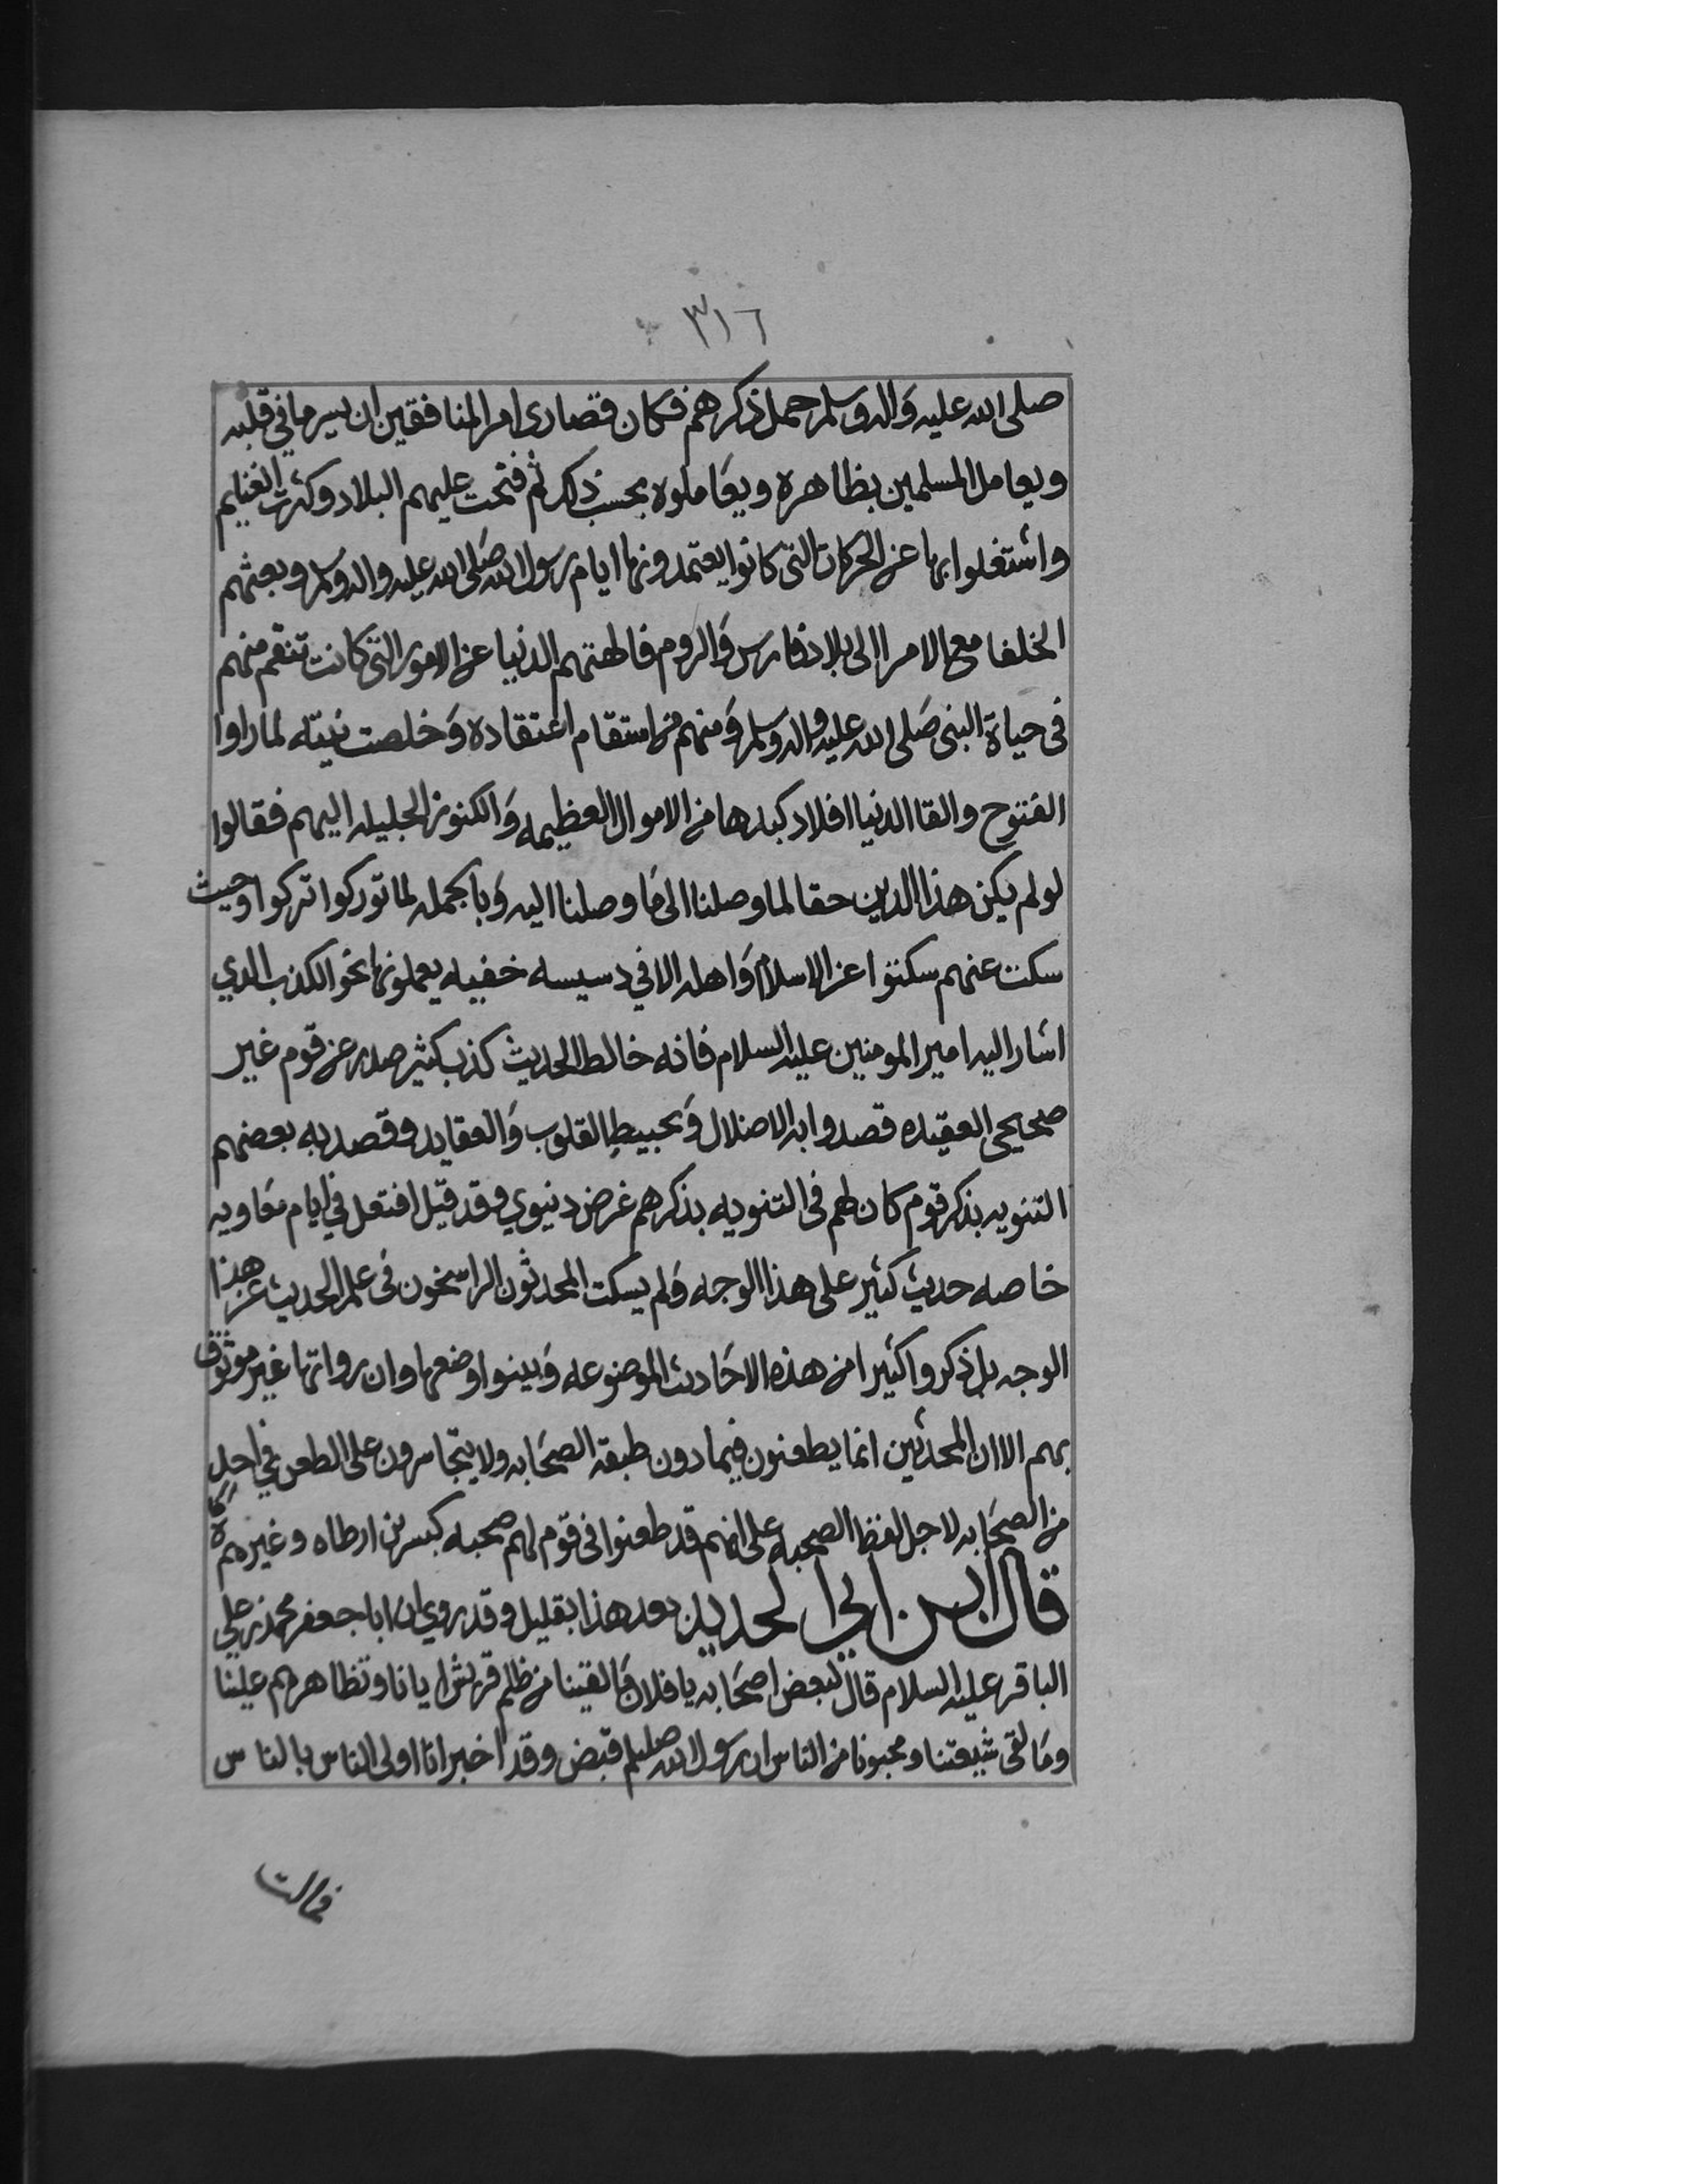 ٣١٦
صلى الله عليه واله وسلم حمل ذكرهم فكان قصارى امر المنافقين ان يسير ما في قلبه
ويعامل المسلمين بظاهره ويعاملوه بحسب ذلك ثم فتحت عليهم البلاد وكثرت الغنايم
واشتغلوا بها عن الحركات التي كانوا يعتمدونها ايام رسول الله صلى الله عليه واله وسلم وبعثهم
الخلفا مع الامرا الى بلاد فارس والروم فالهتهم الدنيا عن الامور التي كانت تنقم منهم
في حياة النبي صلى الله عليه واله وسلم ومنهم من استقام اعتقاده وخلصت نيته لما راوا
الفتوح والقا الدنيا افلاد كبدها من الاموال العظيمه والكنوز الجليله اليهم فقالوا
لو لم يكن هذا الدين حقا لما وصلنا الى ما وصلنا اليه وبالجمله لما توركوا تركوا وحيث
سكت عنهم سكتوا عن الاسلام واهله الا في دسيسه خفيه يعملونها نحو الكذب الذي
اشار اليه امير المومنين عليه السلام فانه خالط الحديث كذب كثير صدر عن قوم غير
صحيحي العقيده قصدوا به الاضلال وتخبيط القلوب والعقايد وقصد به بعضهم
التنويه بذكر قوم كان لهم في التنويه بذكرهم غرض دنيوي وقد قيل افتعل في ايام معاويه
خاصه حديث كثير على هذا الوجه ولم يسكت المحدثون الراسخون في علم الحديث عن هذا
الوجه بل ذكروا كثيرا من هذه الاحاديث الموضوعه وبينوا وضعها وان رواتها غير موثوق
بهم الا ان المحدثين انما يطعنون فيما دون طبقة الصحابه ولا يتجاسرون على الطعن في احد
من الصحابه لاجل لفظ الصحبه على انهم قد طعنوا في قوم لهم صحبه كبسر بن ارطاه وغيرهم
قال ابن ابي الحديد بعد هذا بقليل وقد روي ان ابا جعفر محمد بن علي
الباقر عليه السلام قال لبعض اصحابه يا فلان ما لقينا من ظلم قريش ايانا وتظاهرهم علينا
وما لقى شيعتنا ومحبونا من الناس ان رسول الله صلعم قبض وقد اخبر انا اولى الناس بالناس
فمالت